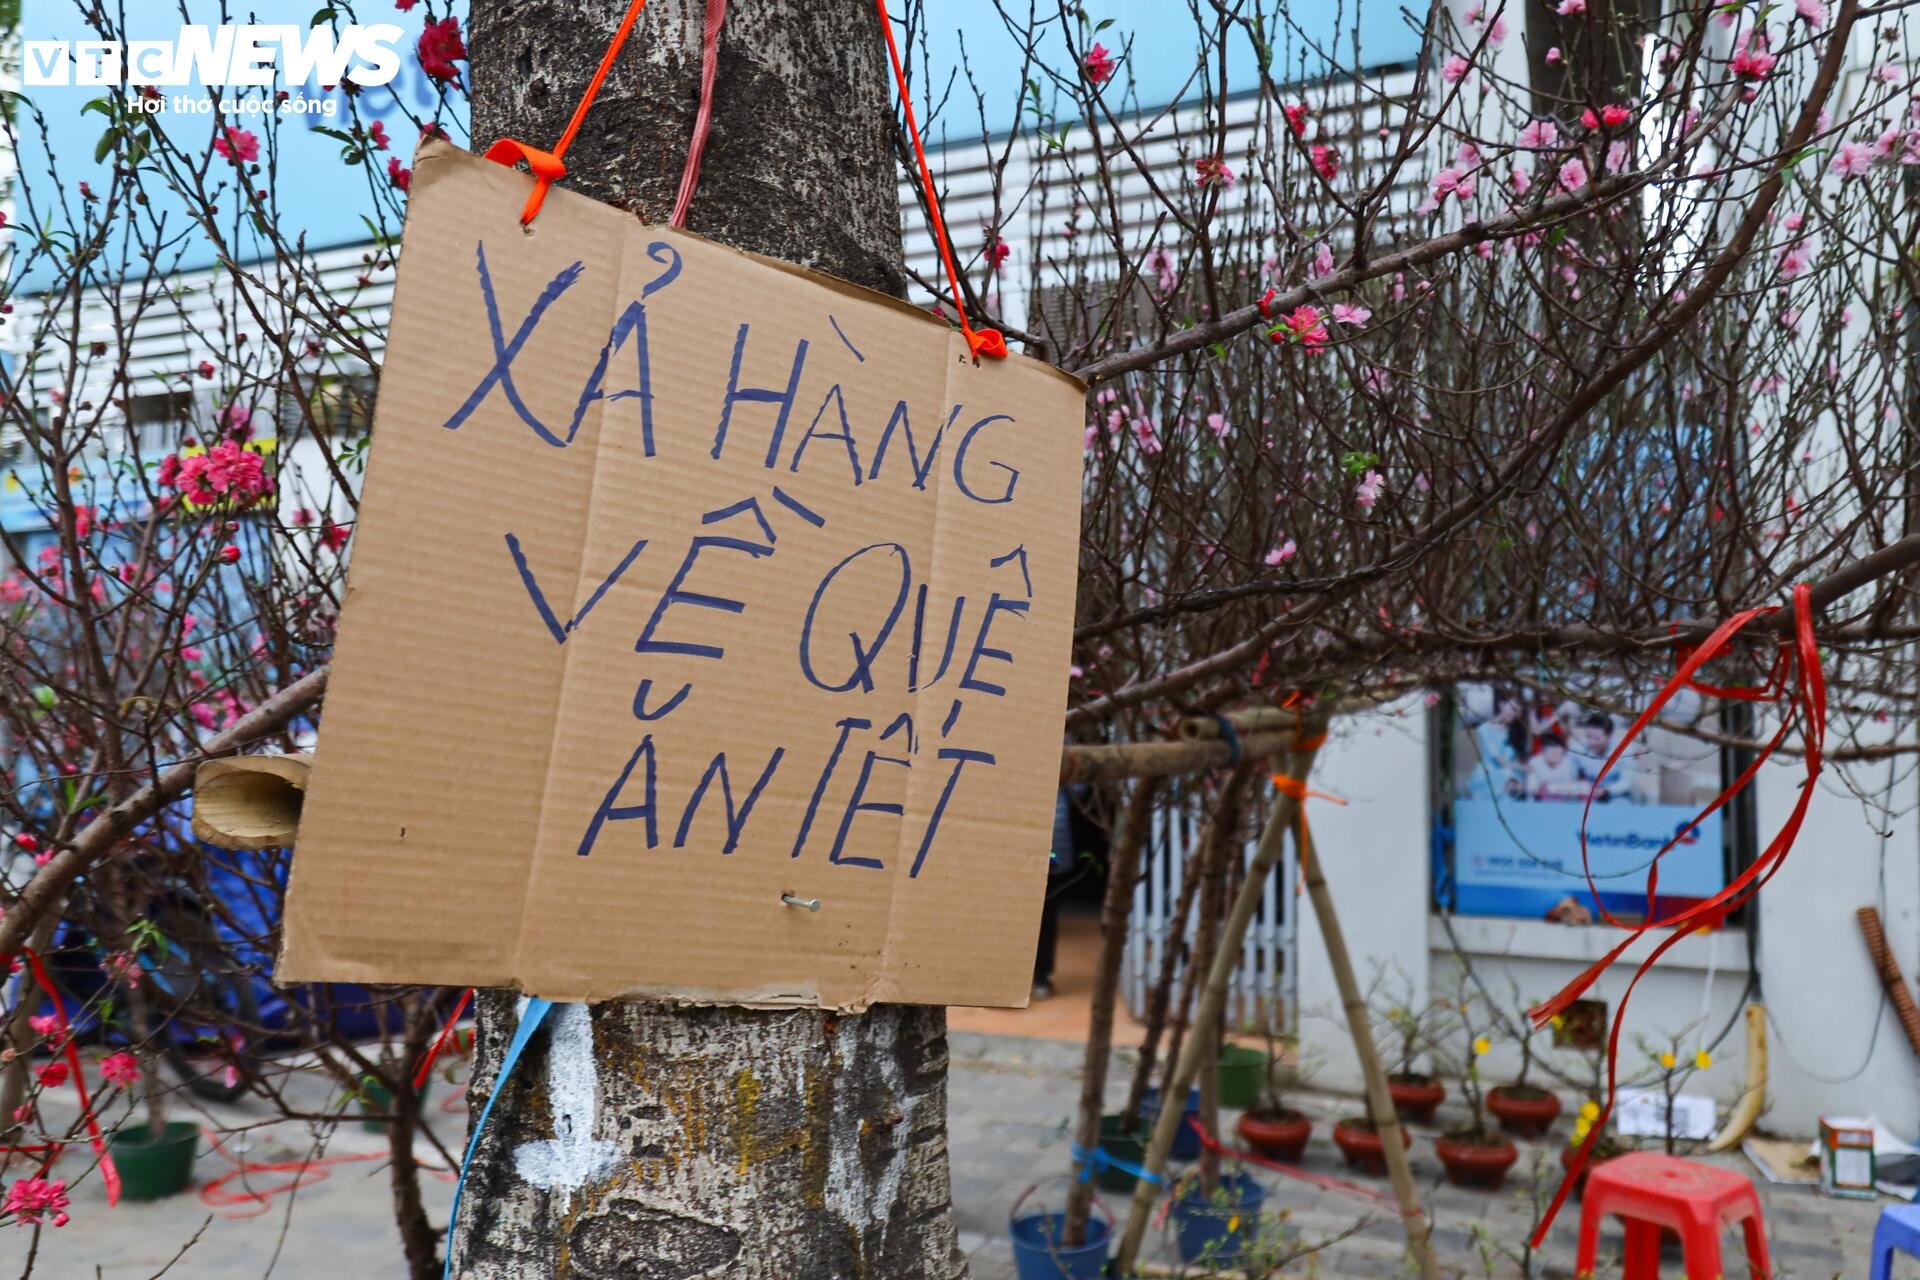 VTC NEWS
Hơi thở cuộc sống
XẢ HÀNG
VỀ QUÊ
ĂN TẾT
VietinBank